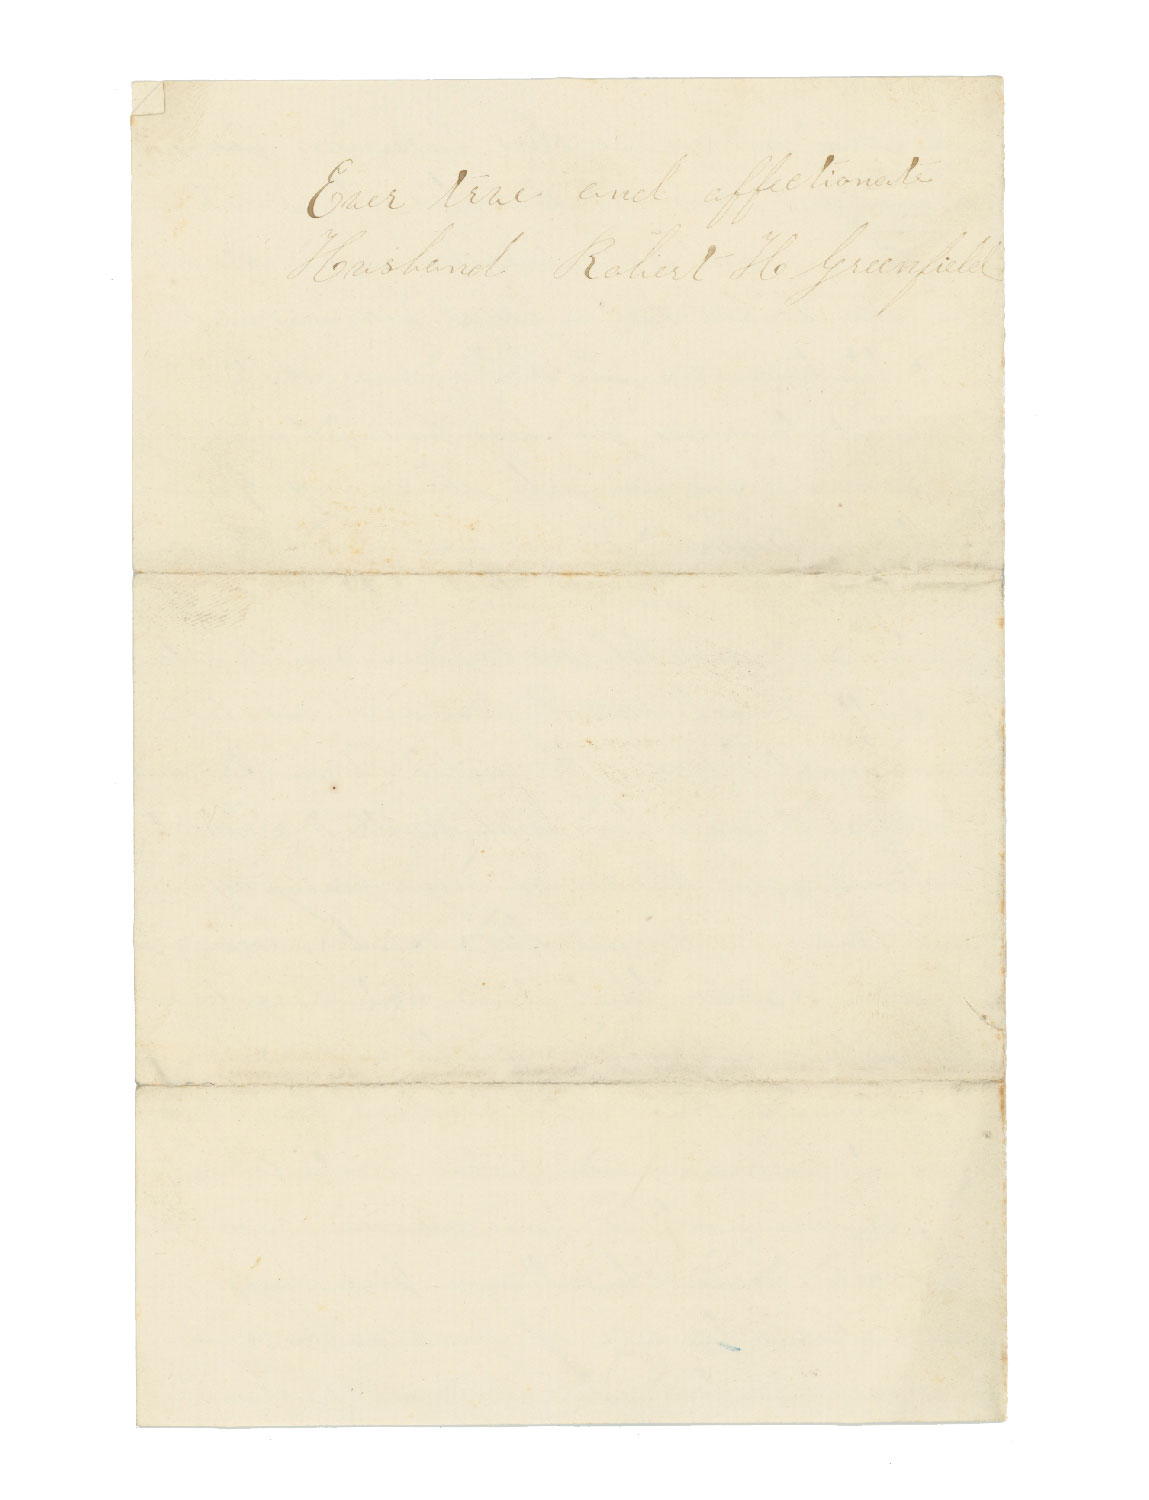 Ever true and affectionate
Husband Robert H Greenfield